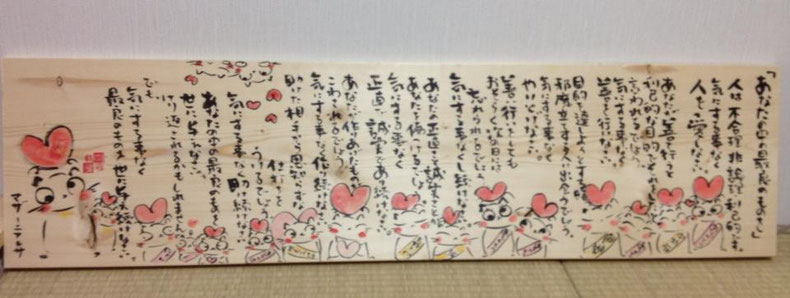 「あなたの中の最良のものを」
人は不合理、非論理、利己的です。
気にする事なく
人を愛しなさい。
あなたが善を行うと
利己的な目的でそれをしたと
言われるでしょう。
気にする事なく
善を行いなさい。
目的を達しようとする時
邪魔立てする人に出会うでしょう。
気にする事なく
やりとげなさい。
善い行いをしても
おそらく次の日には
忘れられるでしょう。
気にする事なくし続けなさい。
あなたの正直さと誠実さとが
あなたを傷つけるでしょう。
気にする事なく
正直で誠実であり続けなさい。
あなたが作りあげたものが
こわされるでしょう。
気にする事なく作り続けなさい。
助けた相手から恩知らずな
仕打ちを
うけるでしょう。
気にする事なく助け続けなさい。
あなたの中の最良のものを
世に与えなさい。
けり返されるかもしれません。
でも
気にする事なく
最良のものを世に与え続けなさい。
マザーテレサ